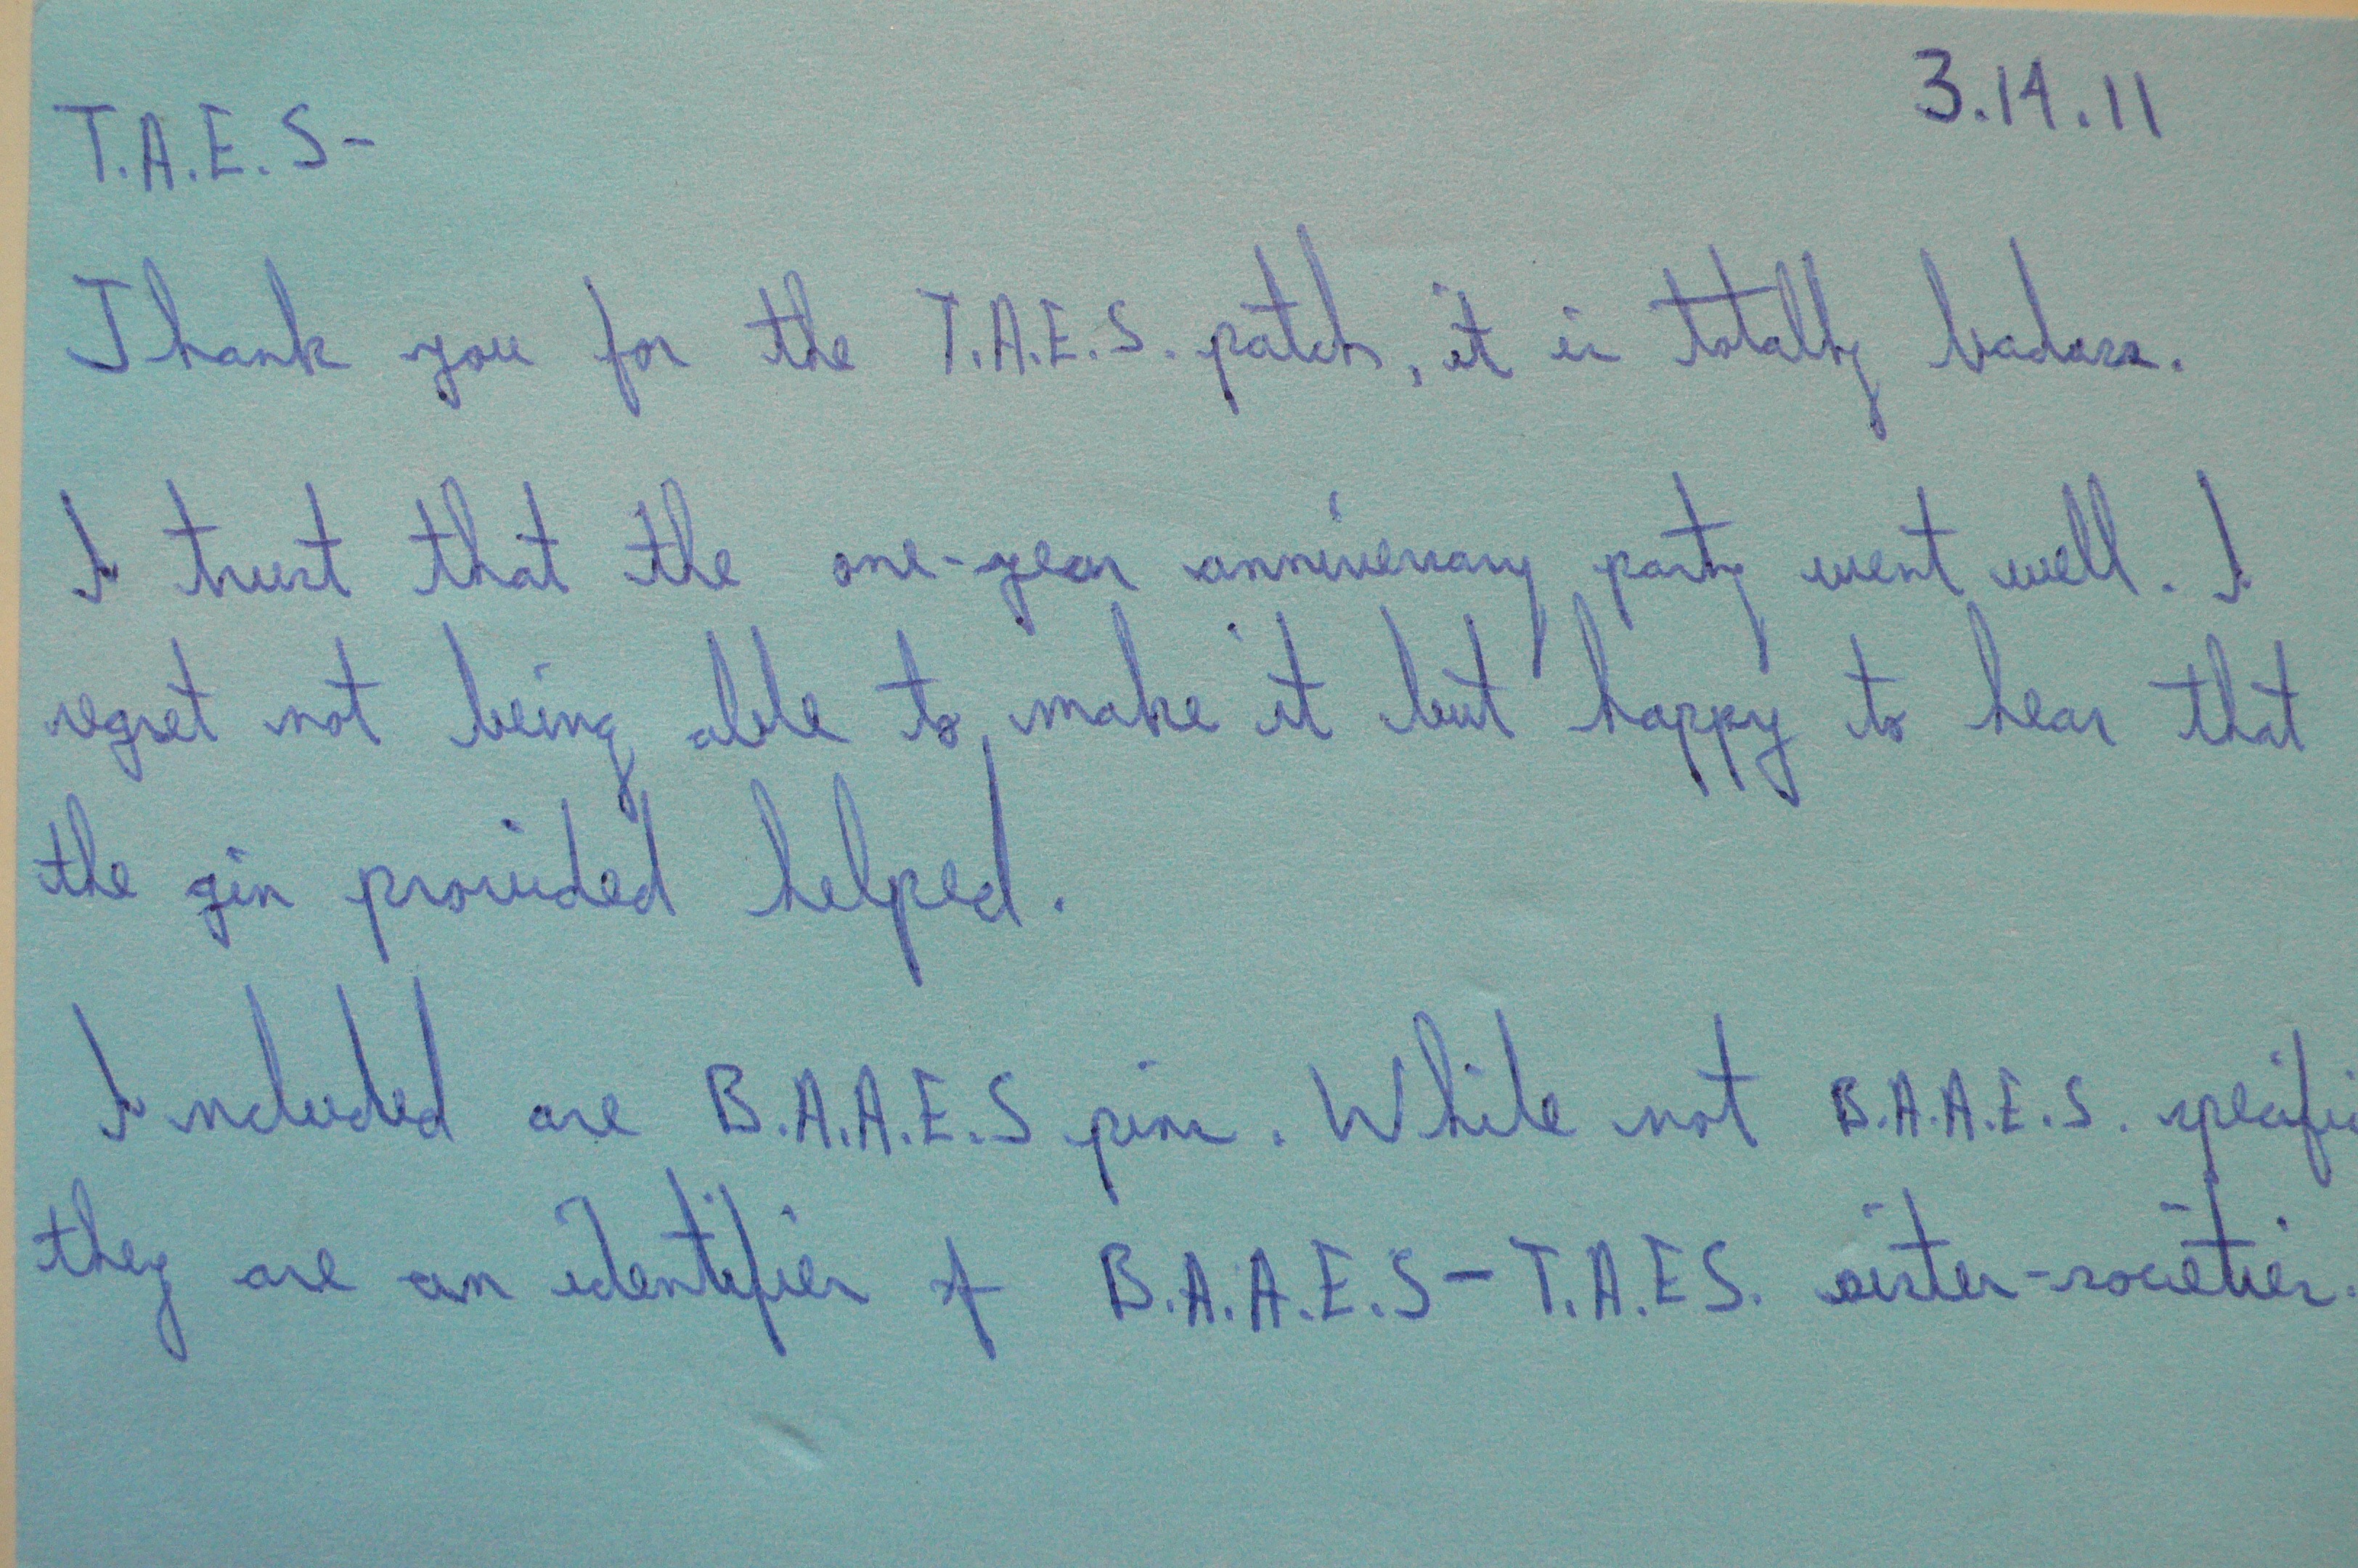 3.14.11
T.A.E.S-
Thank you for the T.A.E.S. patch, it is totally badass.
I trust that the one-year anniversary party went well. I
regret not being able to make it but happy to hear that
the gin provided helped.
Included are B.A.A.E.S pins. While not B.A.A.E.S. specific
they are an identifier of B.A.A.E.S-T.A.E.S. sister-societies.